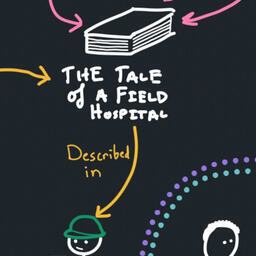 THE TALE
of A FIELD
HOSPITAL
Described
in